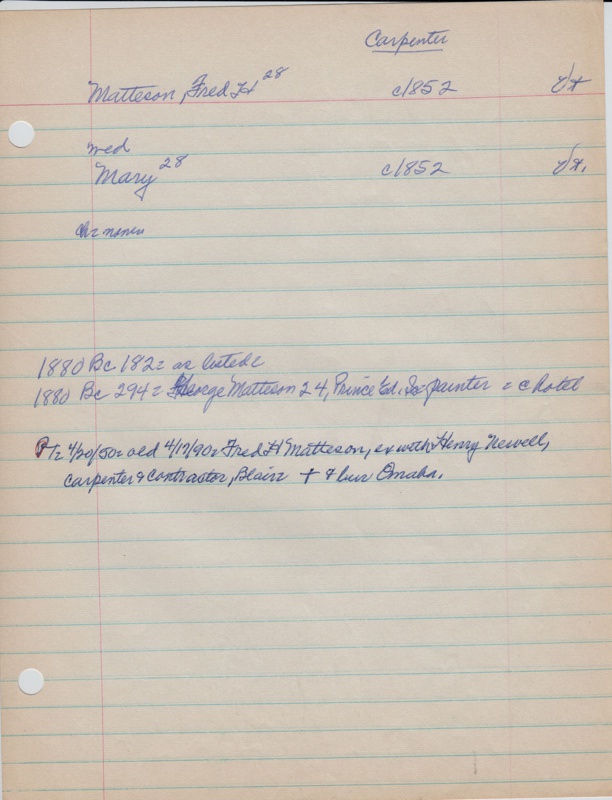 Carpenter
Matteson, Fred H 28 c1852 Vt
wed
Mary 28 c1852 Vt.
Ch= none=
1880 Bc 182= as listed=
1880 Bc 294= George Matteson 24, Prince Ed. Is= painter = c hotel
PT= 4/20/50= old 4/17/90= Fred H Matteson, ex with Henry Newell,
carpenter & contractor, Blair= + & bur Omaha.